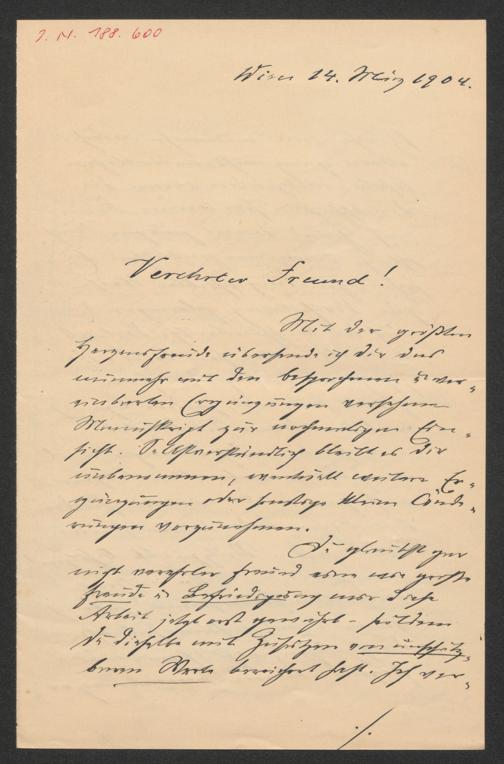 J. N. 188.600
Wien 14. März 1904.
Verehrter Freund!
Mit der größten
Herzensfreude übersende ich Dir das
nunmehr mit den besprochenen u ver-
einbarten Ergänzungen versehene
Manuskript zur nochmaligen Ein-
sicht. Selbstverständlich bleibt es Dir
unbenommen, eventuell weitere Er-
gänzungen oder sonstige kleine Ände-
rungen vorzunehmen.
Du glaubst gar
nicht verehrter Freund eine wie große
Freude u Befriedigung mir diese
Arbeit jetzt erst gewährt - seitdem
Du dieselbe mit Zusätzen von unschätz-
barem Werte bereichert hast. Ich ver-
./.